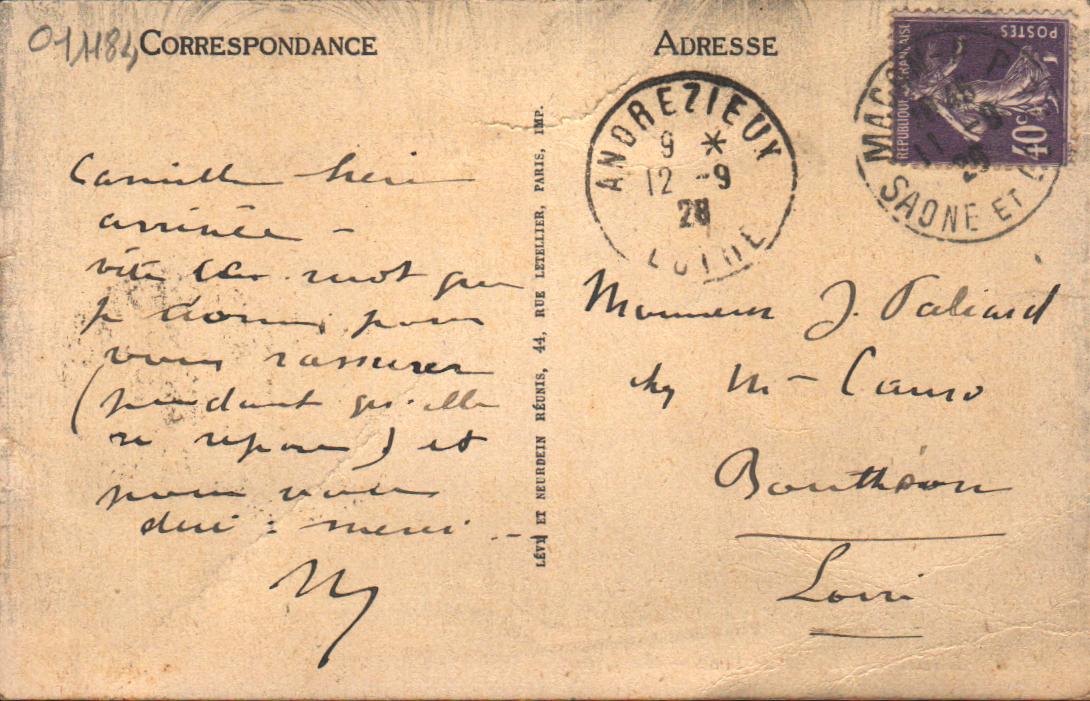 011184
CORRESPONDANCE
ADRESSE
RÉPUBLIQUE FRANÇAISE
POSTES
40c
MACON
11 -9
28
SAONE ET L
ANDREZIEUX
9 *
12 -9
28
LOIRE
LÉVY ET NEURDEIN RÉUNIS, 44, RUE LETELLIER, PARIS, IMP.
Camille bien
arrivée -
vite un mot que
je donne, pour
vous rassurer
(pendant qu'elle
se repose) et
pour vous
dire : merci -
Monsieur J. Paliard
chez M -
Bouthéon
Loire